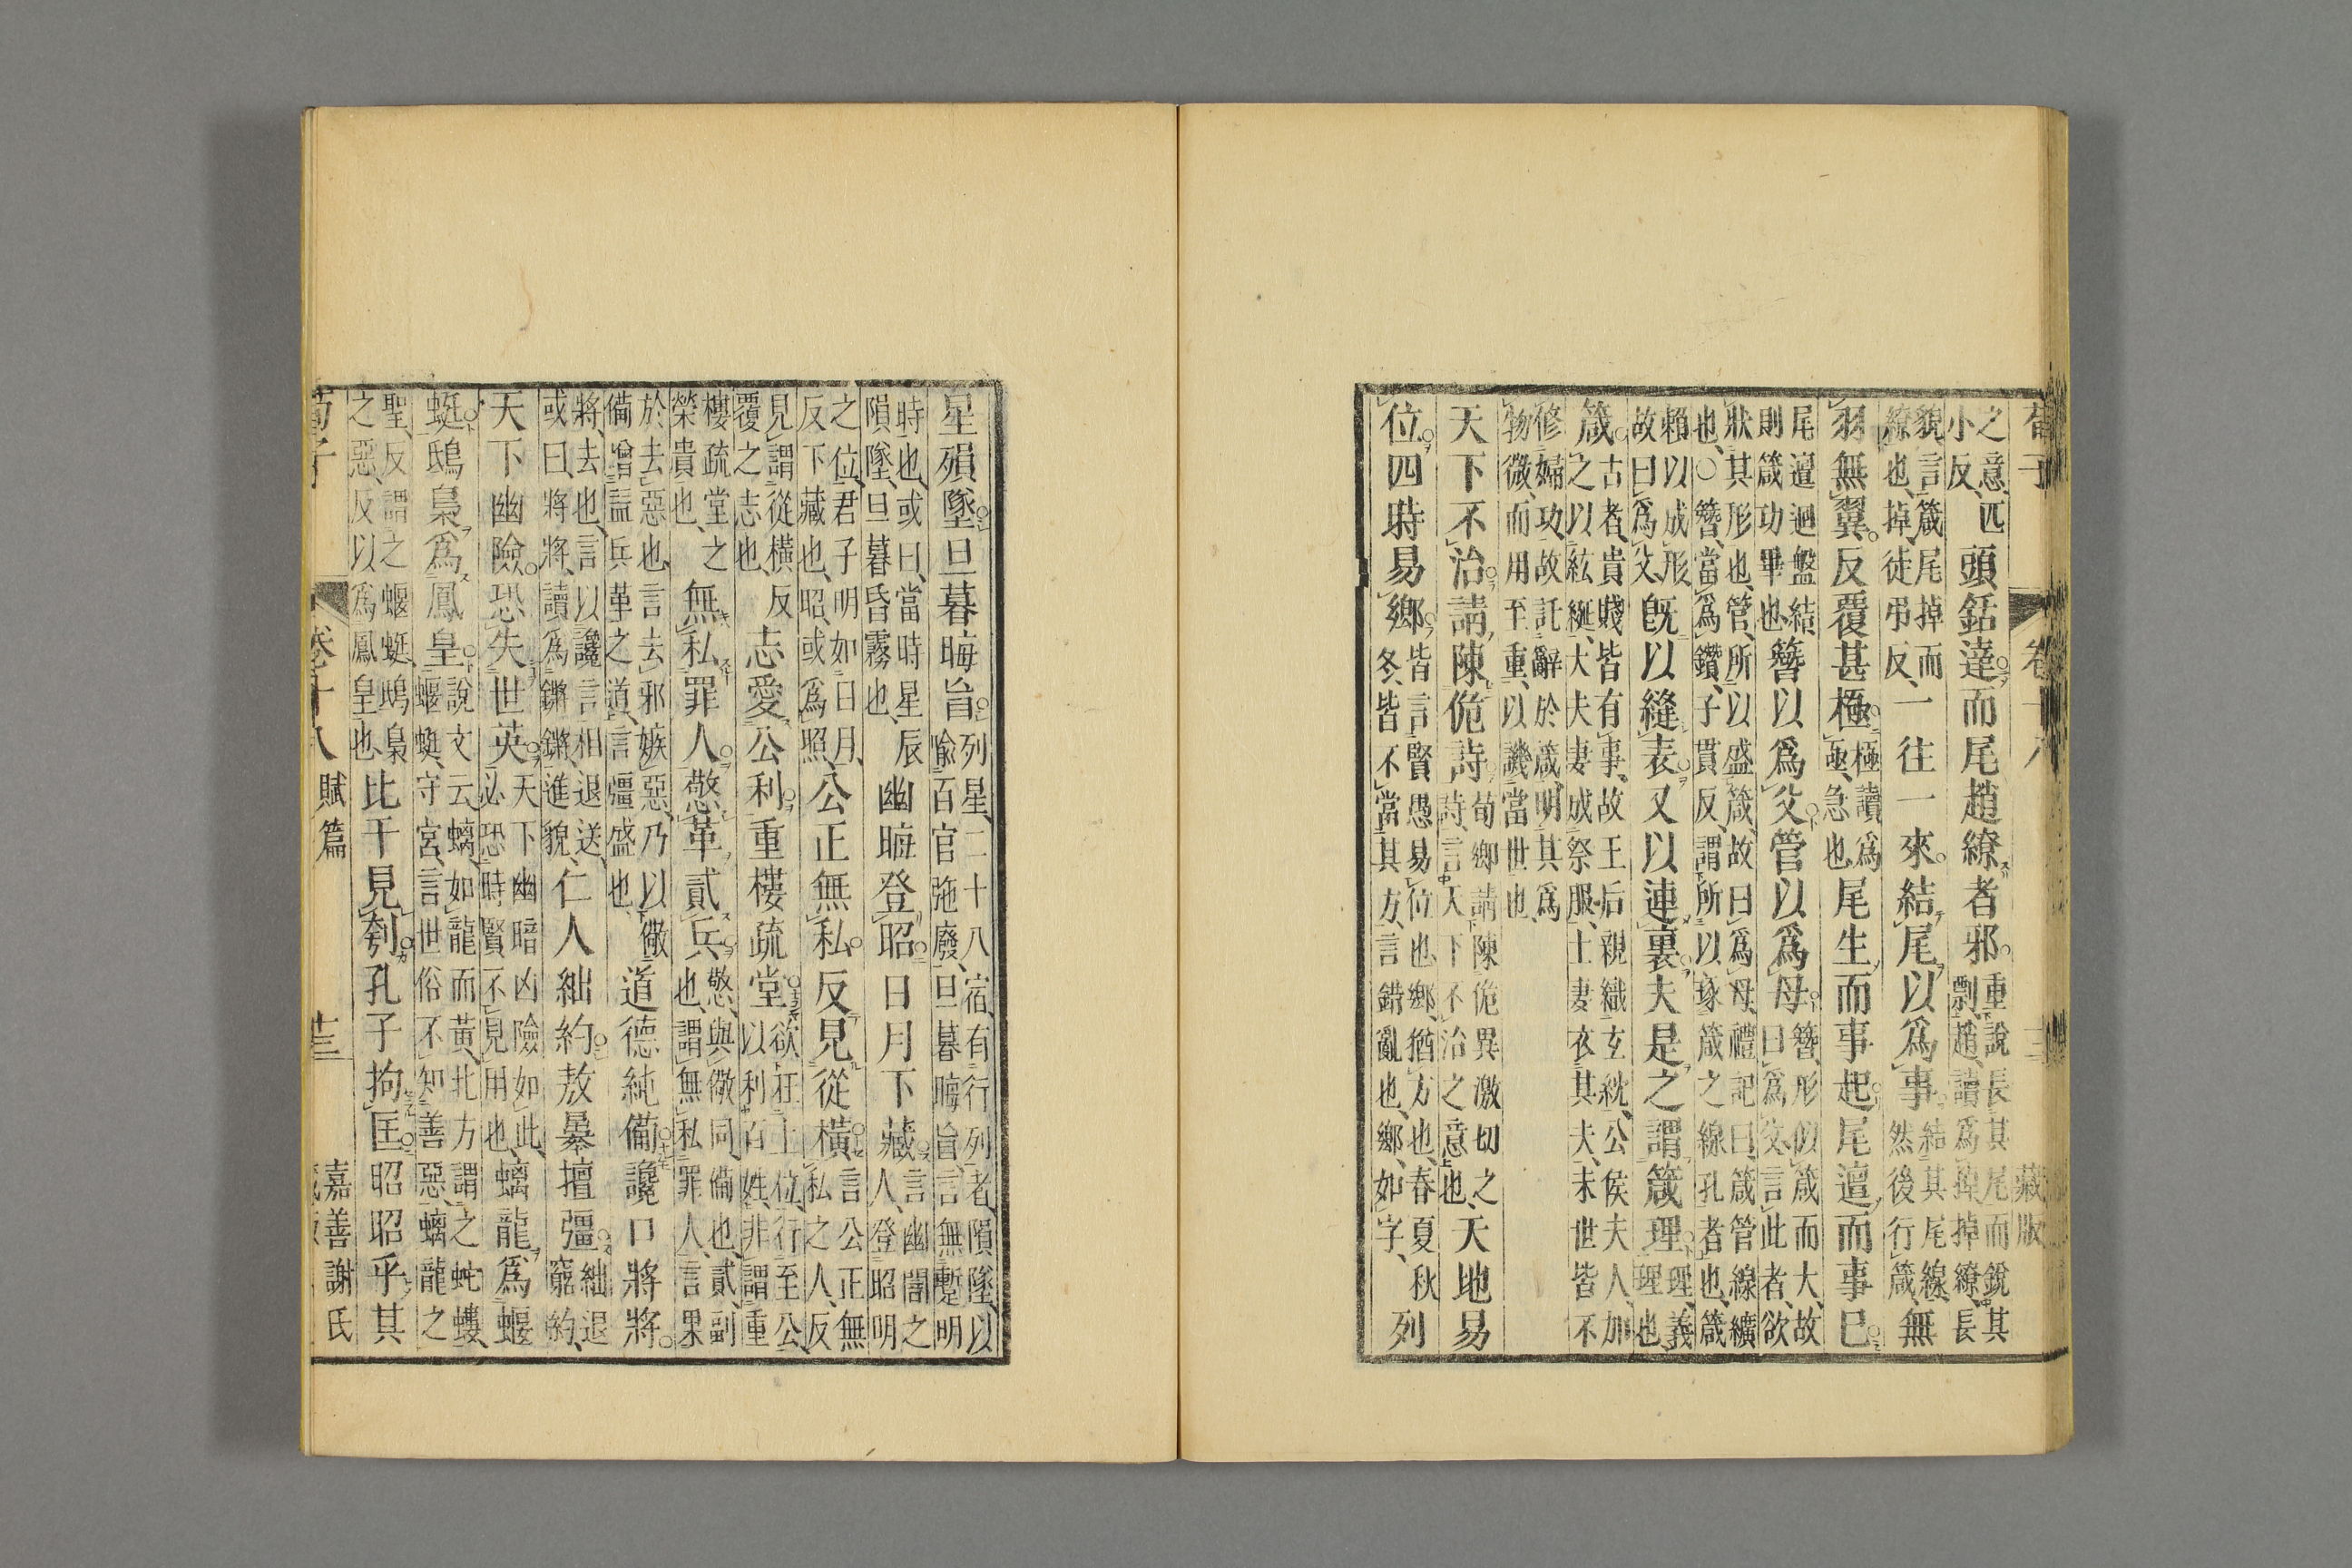 荀子 卷十八 三 藏版
之意匹
小反 頭銛達而尾趙繚者邪 重說長其尾而銳其
剽趙讀爲掉掉繚長
貌言箴尾掉而
繚也掉徒弔反 一往一來結尾以爲事 結其尾線
然後行箴 無
羽無翼反覆甚極 極讀爲
亟急也 尾生而事起尾邅而事已
尾邅迴盤結
則箴功畢也 簪以爲父管以爲母 簪形似箴而大故
曰爲父言此者欲
狀其形也管所以盛箴故曰爲母禮記曰箴管線纊
也○簪當爲鑽子貫反謂所以琢箴之線孔者也箴
賴以成形
故曰爲父 旣以縫表又以連裏夫是之謂箴理 理義
理也
箴 古者貴賤皆有事故王后親織玄紞公侯夫人加
之以紘綖大夫妻成祭服士妻衣其夫末世皆不
修婦功故託辭於箴明其爲
物微而用至重以譏當世也
天下不治請陳佹詩 荀卿請陳佹異激切之
詩言天下不治之意也 天地易
位四時易鄉 皆言賢愚易位也鄉猶方也春夏秋
冬皆不當其方言錯亂也鄉如字 列
星殞墜旦暮晦盲 列星二十八宿有行列者隕墜以
喩百官弛廢旦暮晦盲言無蹔明
時也或曰當時星辰
隕墜旦暮昏霧也 幽晦登昭日月下藏 言幽闇之
人登昭明
之位君子明如日月
反下藏也昭或爲照 公正無私反見從橫 言公正無
私之人反
見謂從橫反
覆之志也 志愛公利重樓疏堂 欲在上位行至公
以利百姓非謂重
樓疏堂之
榮貴也 無私罪人憼革貳兵 憼與儆同備也貳副
也謂無私罪人言果
於去惡也言去邪嫉惡乃以儆
備增益兵革之道言彊盛也 道德純備讒口將將
將去也言以讒言相退送
或曰將將讀爲鏘鏘進貌 仁人絀約敖暴擅彊 絀退
窮約
天下幽險恐失世英 天下幽暗凶險如此
必恐時賢不見用也 螭龍爲蝘
蜓鴟梟爲鳳皇 說文云螭如龍而黃北方謂之蛇螻
蝘蜓守宮言世俗不知善惡螭龍之
聖反謂之蝘蜓鴟梟
之惡反以爲鳳皇也 比干見刳孔子拘匡昭昭乎其
荀子 卷十八 賦篇 十三 嘉善謝氏